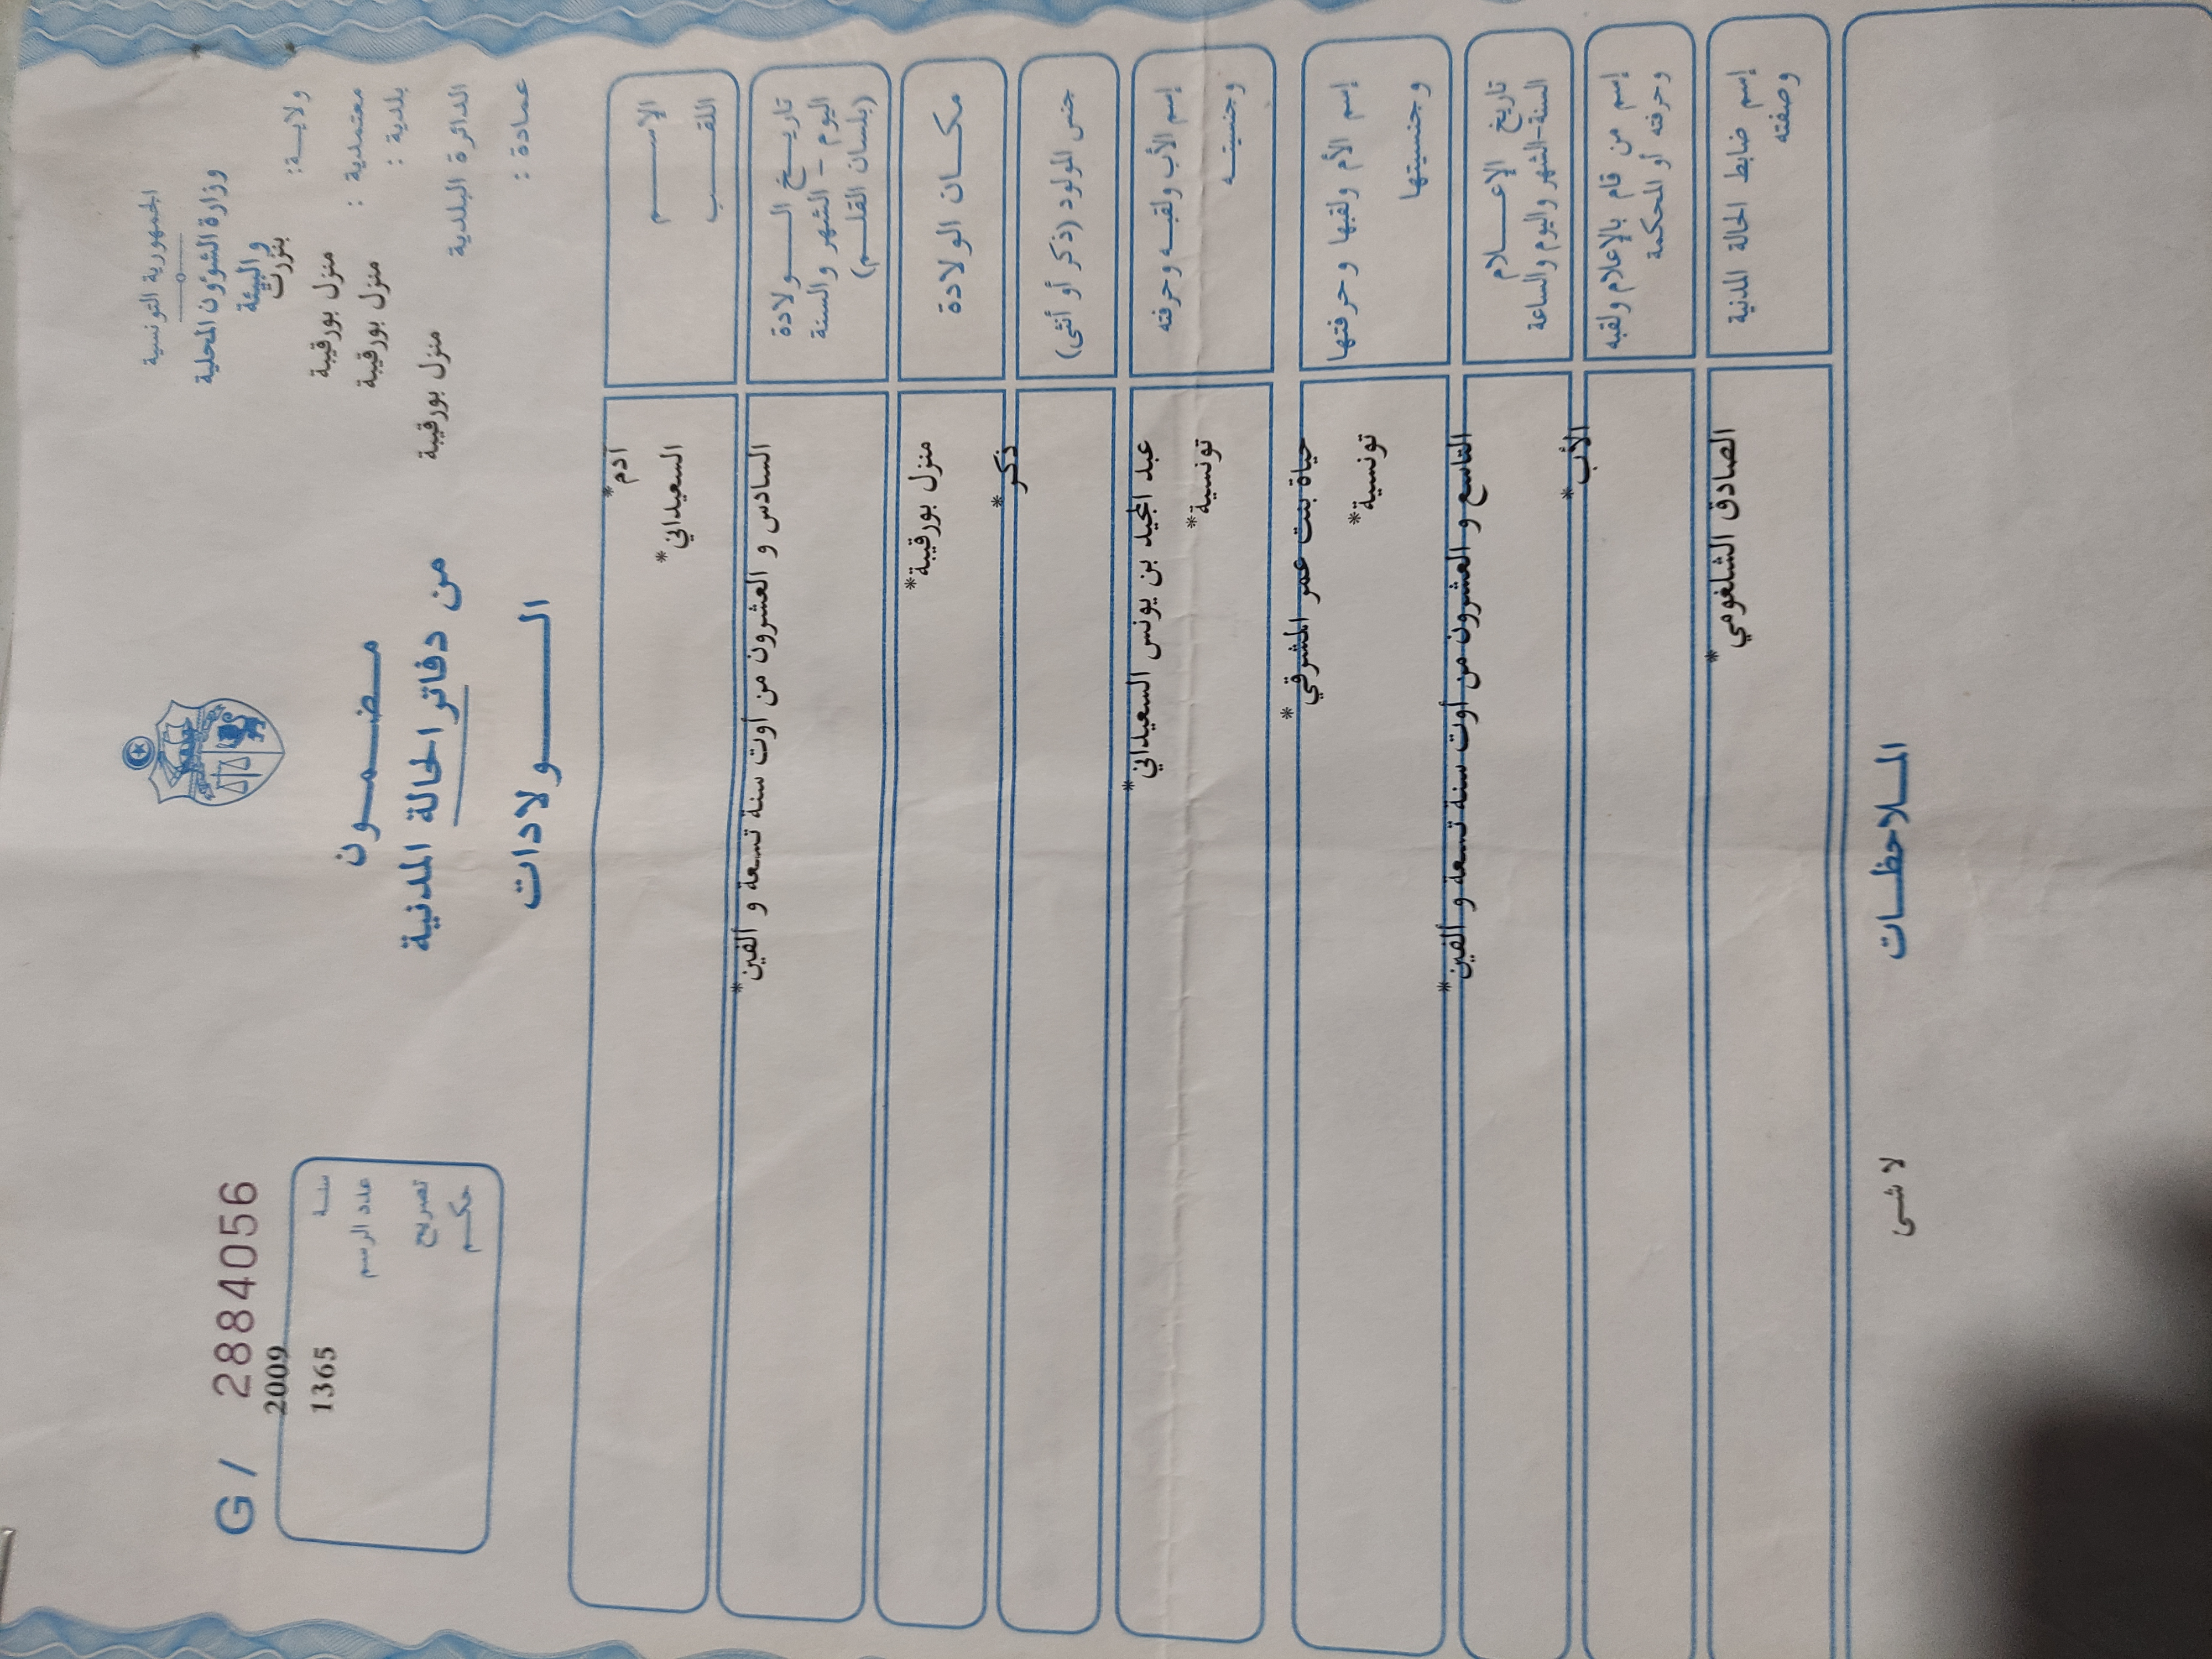 الجمهورية التونسية
وزارة الشؤون المحلية
والبيئة
ولايــة: بنزرت
معتمدية : منزل بورقيبة
بلدية : منزل بورقيبة
الدائرة البلدية منزل بورقيبة
عمادة :
G / 2884056
سنــة 2009
عدد الرسم 1365
تصريح
حكــم
مـضـمــون
من دفاتر الحالة المدنية
الــــولادات
الإســــم آدم*
اللقــــب السعيداني*
تاريــخ الــــولادة
اليوم - الشهر والسنة
(بلسان القلــم)
السادس و العشرون من أوت سنة تسعة و ألفين*
مكــان الولادة منزل بورقيبة*
جنس المولود (ذكر أو أنثى) ذكر*
إسم الأب ولقبــه وحرفته عبد المجيد بن يونس السعيداني*
وجنسيتــه تونسية*
إسم الأم ولقبها وحرفتها حياة بنت عمر المشرقي*
وجنسيتها تونسية*
تاريخ الإعـــلام
السنة-الشهر واليوم والساعة
التاسع و العشرون من أوت سنة تسعة و ألفين*
إسم من قام بالإعلام ولقبه
وحرفته أو المحكمة
الأب*
إسم ضابط الحالة المدنية
وصفته
الصادق الشلغومي*
المـلاحظــات
لا شــى